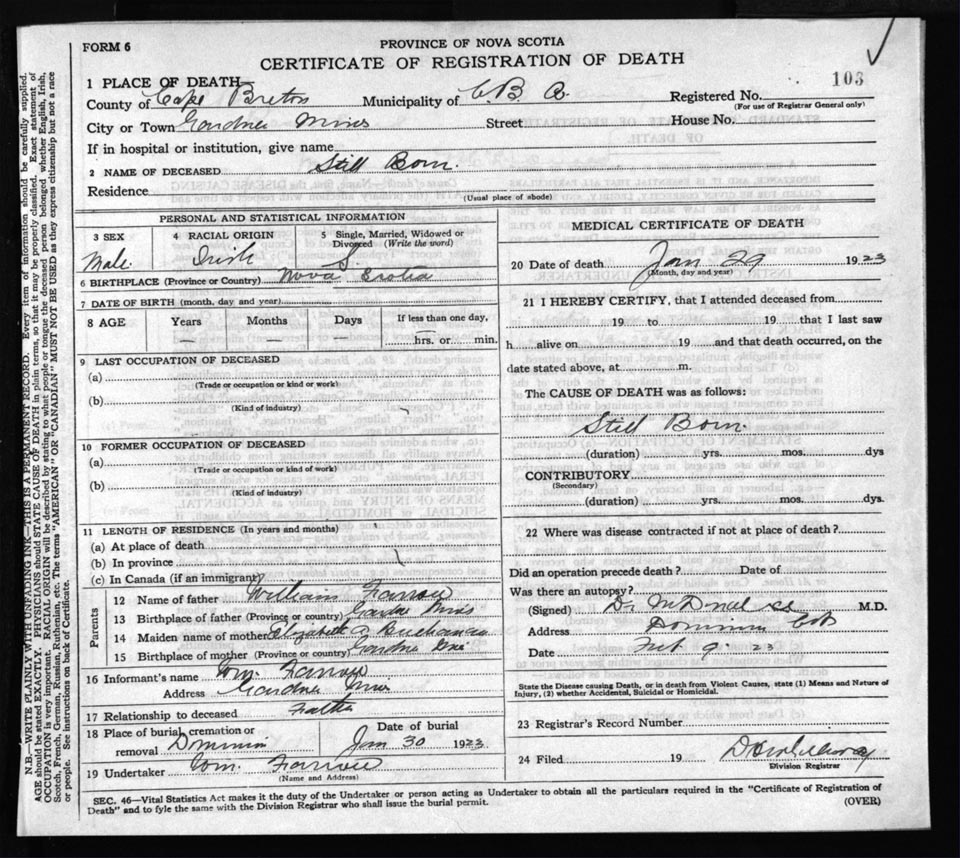 FORM 6
PROVINCE OF NOVA SCOTIA
CERTIFICATE OF REGISTRATION OF DEATH
103
1 PLACE OF DEATH—
County of Cape Breton Municipality of C. B. Co. Registered No.
(For use of Registrar General only)
City or Town Gardner Mines Street House No.
If in hospital or institution, give name
2 NAME OF DECEASED Still Born.
Residence
(Usual place of abode)
PERSONAL AND STATISTICAL INFORMATION
3 SEX 4 RACIAL ORIGIN 5 Single, Married, Widowed or Divorced (Write the word)
Male Irish S.
6 BIRTHPLACE (Province or Country) Nova Scotia
7 DATE OF BIRTH (month, day and year)
8 AGE Years Months Days If less than one day,
— — — — hrs. or — min.
9 LAST OCCUPATION OF DECEASED
(a)
(Trade or occupation or kind or work)
(b)
(Kind of industry)
10 FORMER OCCUPATION OF DECEASED
(a)
(Trade or occupation or kind of work)
(b)
(Kind of industry)
11 LENGTH OF RESIDENCE (In years and months)
(a) At place of death
(b) In province
(c) In Canada (if an immigrant)
Parents
12 Name of father William Farrow
13 Birthplace of father (Province or country) Gardner Mines
14 Maiden name of mother Elizabeth Buchanan
15 Birthplace of mother (Province or country) Gardner Mines
16 Informant's name Wm. Farrow
Address Gardner Mines
17 Relationship to deceased Father
18 Place of burial, cremation or removal Dominion Date of burial Jan 30 1923
19 Undertaker Wm. Farrow
(Name and Address)
MEDICAL CERTIFICATE OF DEATH
20 Date of death Jan 29 1923
(Month, day and year)
21 I HEREBY CERTIFY, that I attended deceased from
19 to 19 that I last saw
h alive on 19 and that death occurred, on the
date stated above, at m.
The CAUSE OF DEATH was as follows:
Still Born.
(duration) yrs. mos. dys
CONTRIBUTORY
(Secondary)
(duration) yrs. mos. dys.
22 Where was disease contracted if not at place of death?
Did an operation precede death? Date of
Was there an autopsy?
(Signed) Dr M. D. M.D.
Address Dominion C B
Date Feb 9 23
State the Disease causing Death, or in death from Violent Causes, state (1) Means and Nature of Injury, (2) whether Accidental, Suicidal or Homicidal.
23 Registrar's Record Number
24 Filed 19
Division Registrar
SEC. 46—Vital Statistics Act makes it the duty of the Undertaker or person acting as Undertaker to obtain all the particulars required in the "Certificate of Registration of
Death" and to fyle the same with the Division Registrar who shall issue the burial permit.
(OVER)
N.B.—WRITE PLAINLY WITH UNFADING INK—THIS IS A PERMANENT RECORD. Every item of information should be carefully supplied.
AGE should be stated EXACTLY. PHYSICIANS should STATE CAUSE OF DEATH in plain terms, so that it may be properly classified. Exact statement of
OCCUPATION is very important. RACIAL ORIGIN will be described by stating to what people or tongue the deceased person belonged whether English, Irish,
Scotch, French, German, Russian, Ruthenian, etc. The terms "AMERICAN" OR "CANADIAN" MUST NOT BE USED as they express citizenship but not a race
or people. See instructions on back of Certificate.